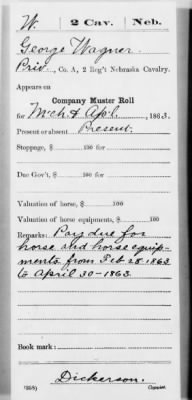 W. 2 Cav. Neb.
George Wagner.
Priv., Co. A, 2 Reg't Nebraska Cavalry.
Appears on
Company Muster Roll
for Mch & Apl., 1863.
Present or absent Present.
Stoppage, $ 100 for
Due Gov't, $ 100 for
Valuation of horse, $ 100
Valuation of horse equipments, $ 100
Remarks: Pay due for
horse and horse equip-
ments from Feb 28-1863
to April 30-1863.
Book mark:
Dickerson.
(358) Copyist.